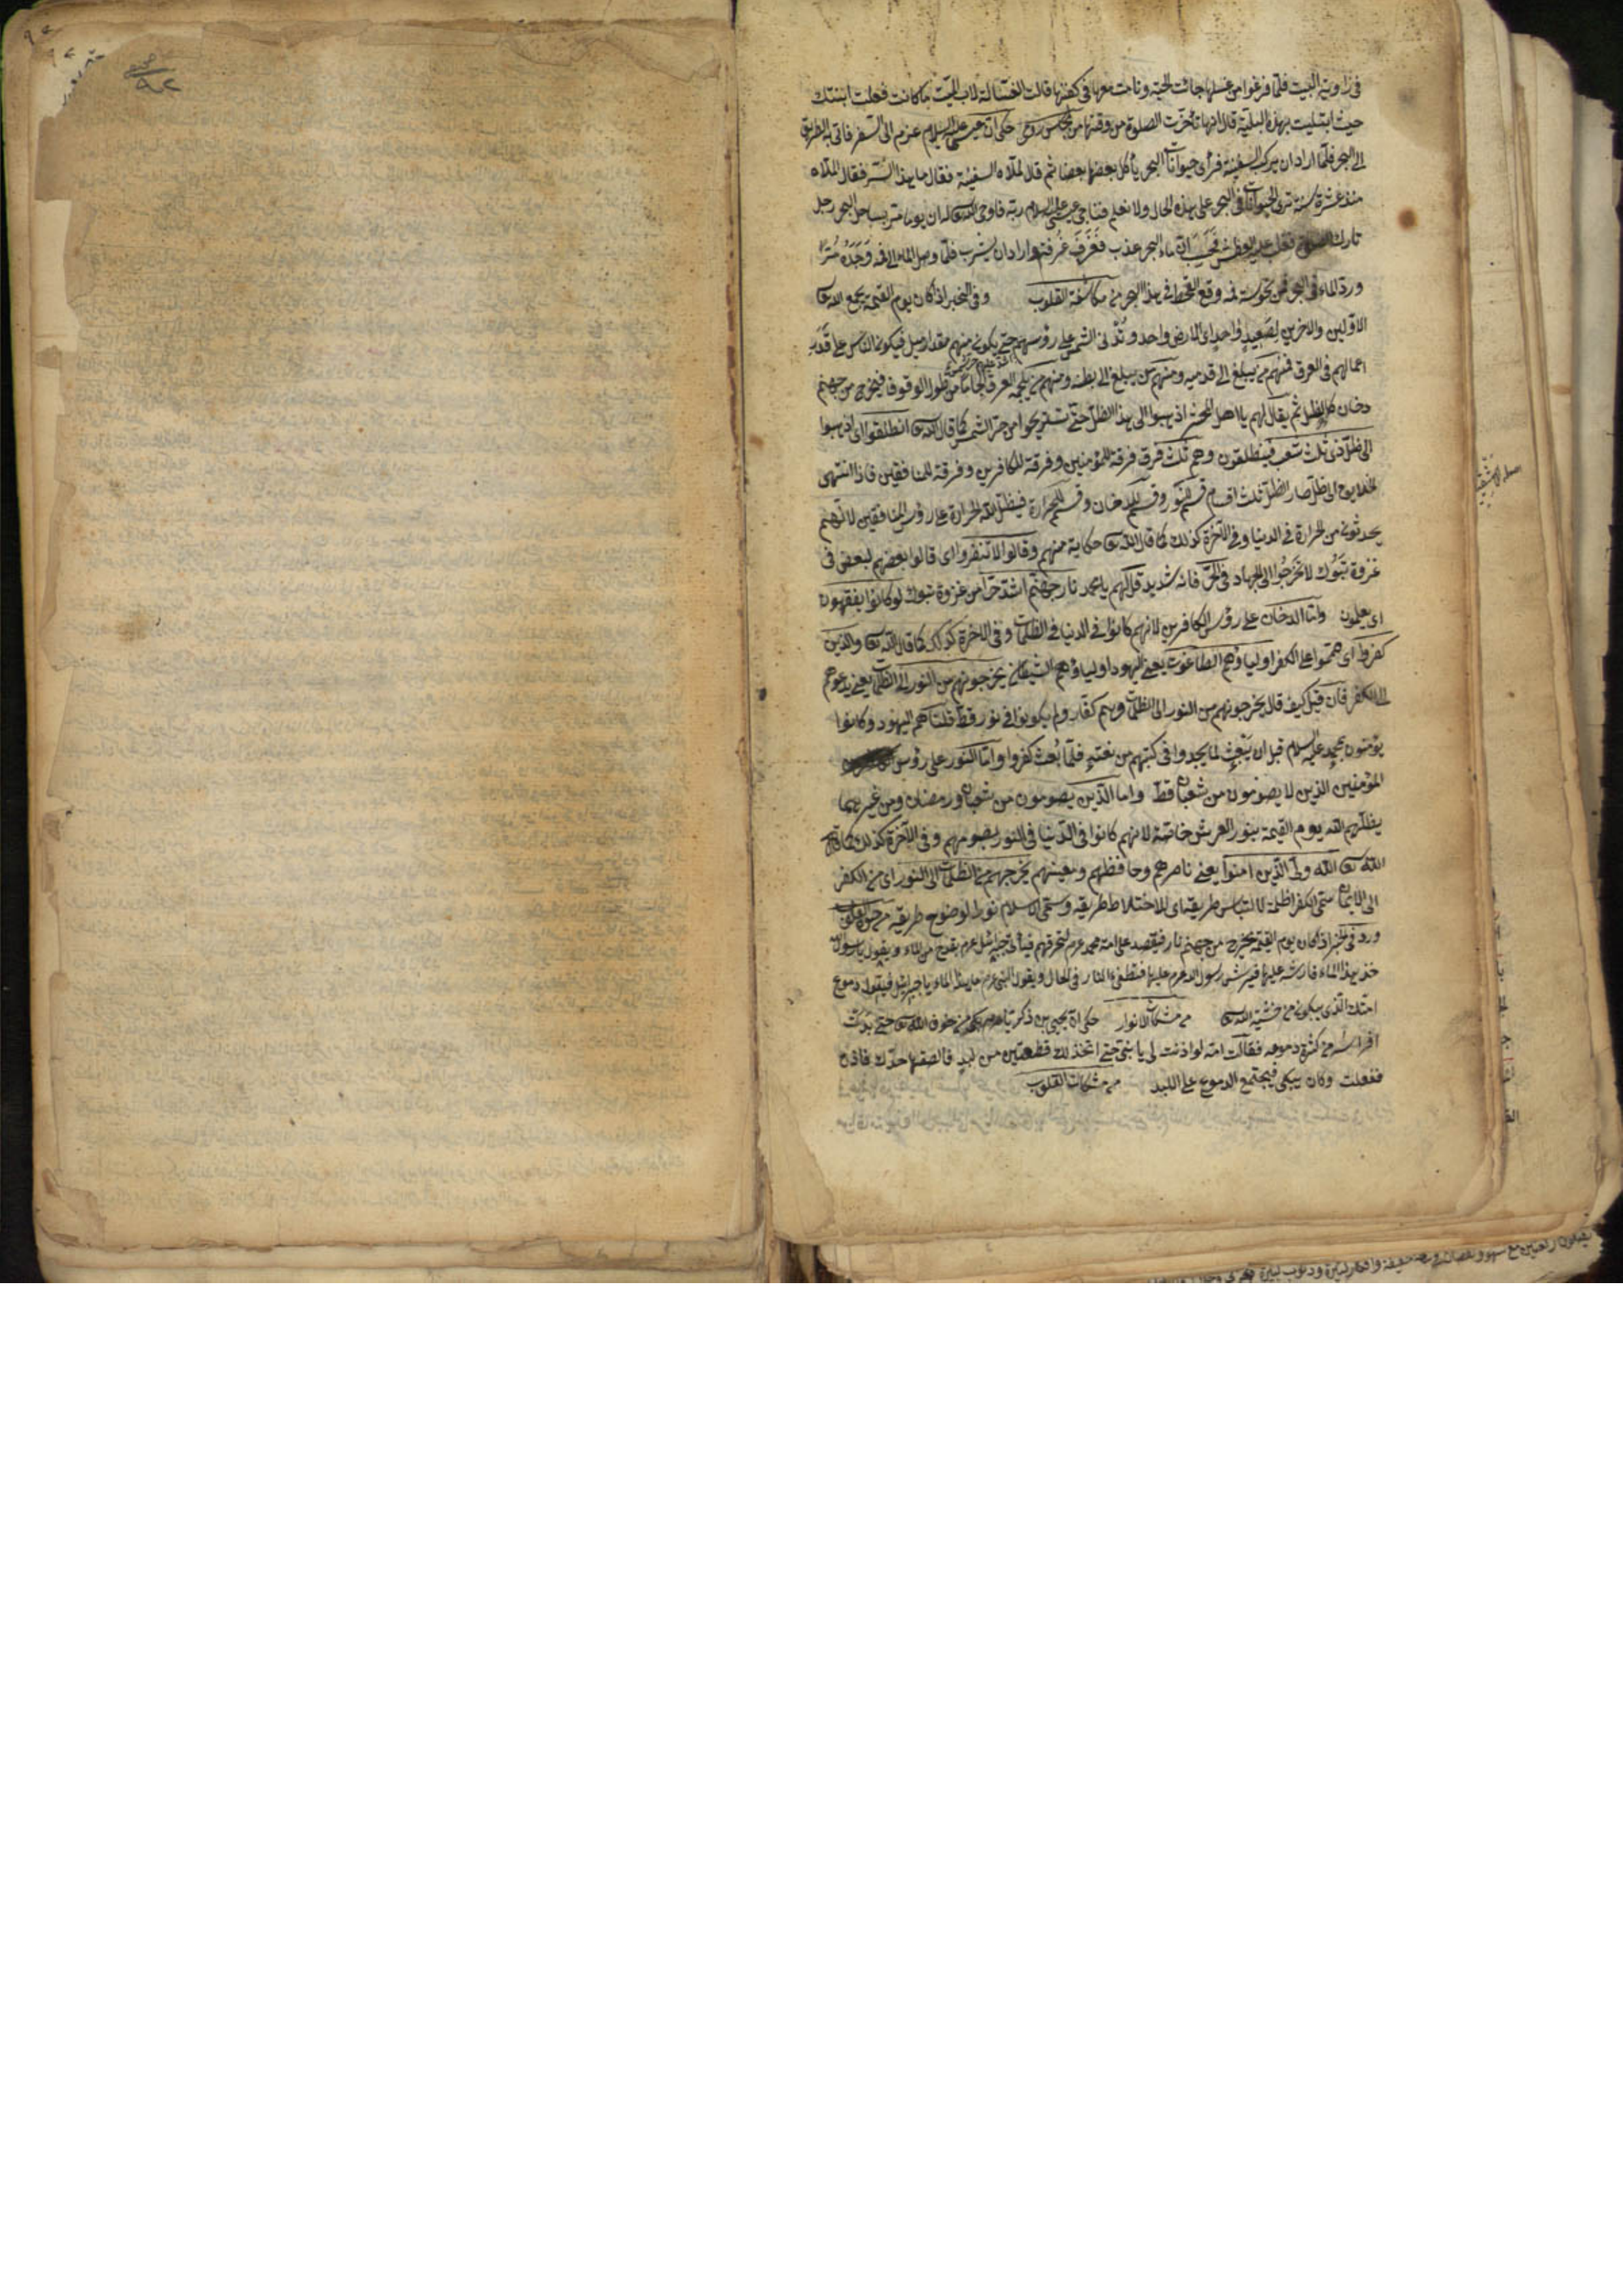 فى زاوية البيت فلمّا فرغوا من غسلها جائت الحيّة ونامت معها فى كفنها قالت الغسّالة لاب الميّت ما كانت فعلت ابنتك
حيث ابتليت بهذه البليّة قال انها تأخّرت الصلوة من وقتها من مجالس رومى حكى ان عيسى عليه السلام عزم الى السفر فاتى الطريق
الى البحر فلمّا اراد ان يركب السفينة فرأى حيوانات البحر يأكل بعضها بعضا ثم قال لملاه السفينة فقال ما هذا السّر فقال الملاه
منذ عشرة سنة ترى الحيوانات فى البحر على هذه الحال ولا نعلم فناجى عيسى عليه السلام ربّه فاوحى الله له ان يوما مرّ بساحل البحر رجل
تارك الصلوة فغلب عليه العطش فحسب انّ ماء البحر عذب فغرف غرفة واراد ان يشرب فلمّا وصل الماء الى فمه وجده مُرّا
وردّ الماء فى البحر فمن نحوسة فمه وقع القحط فى هذا البحر من مكاشفة القلوب وفى الخبر اذا كان يوم القيمة يجمع الله تعا
الاوّلين والاخرين لصعيد واحد اى لارض واحد وتدنى الشمس على رؤسهم حتى يكون منهم مقدار ميل فيكون الناس على قدر
اعمالهم فى العرق فمنهم من يبلغ الى قدميه ومنهم من يبلغ الى بطنه ومنهم من يلجمه العرق الجاما من طور الوقوف فيخرج من جهنم
دخان كالظلل ثم يقال لهم يا اهل المحشر اذهبوا الى هذا الظلّ حتى تستريحوا من حرّ الشمس كما قال الله تعا انطلقوا اى اذهبوا
الى ظلّ ذى ثلث شعب فينطلقون وهم ثلث فرق فرقة للمؤمنين وفرقة للكافرين وفرقة للمنافقين فاذا انتهى
الخلايق الى ظلّ صار الظلّ ثلث اقسام قسم للنور وقسم للدخان وقسم للحرارة فيظلّ الله الحرارة على رؤس المنافقين لانّهم
يحدثون من الحرارة فى الدنيا وفى الآخرة كذلك كما قال الله تعا حكاية منهم وقالوا لا تنفروا اى قالوا بعضهم لبعض فى
غزوة تبوك لا تخرجوا الى الجهاد فى الحرّ فانه شديد قل لهم يا محمد نار جهنّم اشدّ حرّا من غزوة تبوك لو كانوا يفقهون
اى يعلمون وامّا الدخان على رؤس الكافرين لانهم كانوا فى الدنيا فى الظلمات وفى الاخرة كذلك كما قال الله تعا والذين
كفروا اى همّوا على الكفر اولياؤهم الطاغوت يعنى اليهود اولياؤهم الشيطان يخرجونهم من النور الى الظلمات يعنى يدعوهم
الى الكفر فان قيل كيف قال يخرجونهم من النور الى الظلمات وهم كفار ولم يكونوا فى نور قطّ قلنا هم اليهود وكانوا
يؤمنون بمحمد عليه السلام قبل ان يبعث لما يجدوا فى كتبهم من نعته فلمّا بُعث كفروا وامّا النور على رؤس
المؤمنين الذين لا يصومون من شعبان قطّ واما الذين يصومون من شعبان ورمضان ومن غيرهما
يظلّهم الله يوم القيمة بنور العرش خاصّة لانهم كانوا فى الدّنيا فى النور بصومهم وفى الآخرة كذلك كما قال
الله تعا الله ولىّ الذين امنوا يعنى ناصرهم وحافظهم ومعينهم يخرجهم من الظلمات الى النور اى من الكفر
الى الايمان سمّى الكفر ظلمة لالتباس طريقه اى لاختلاط طريقه وسمّى الاسلام نورا لوضوح طريقه
ورد فى الخبر اذا كان يوم القيمة يخرج من جهنم نار فيقصد على امة محمد عرم لتحرقهم فيأتى جبرائيل عرم بقدح من الماء ويقول يا رسول الله
خذ هذا الماء فارشه عليها فيرش رسول الله عرم عليها فتطفىء النار فى الحال ويقول النبى عرم ما هذا الماء يا جبرائيل فيقول دموع
امتك الذى يبكون من خشية الله تعا من مشكاة الانوار حكى ان يحيى بن زكريا من خوف الله تعا حتى
من كثرة دموعه فقالت امّه لو اذنت لى يا بنىّ حتى اتخذ لك قطعتين من لبد فالصقها خدّك فاذن
ففعلت وكان يبكى فيجتمع الدموع على اللبد من مشكات القلوب